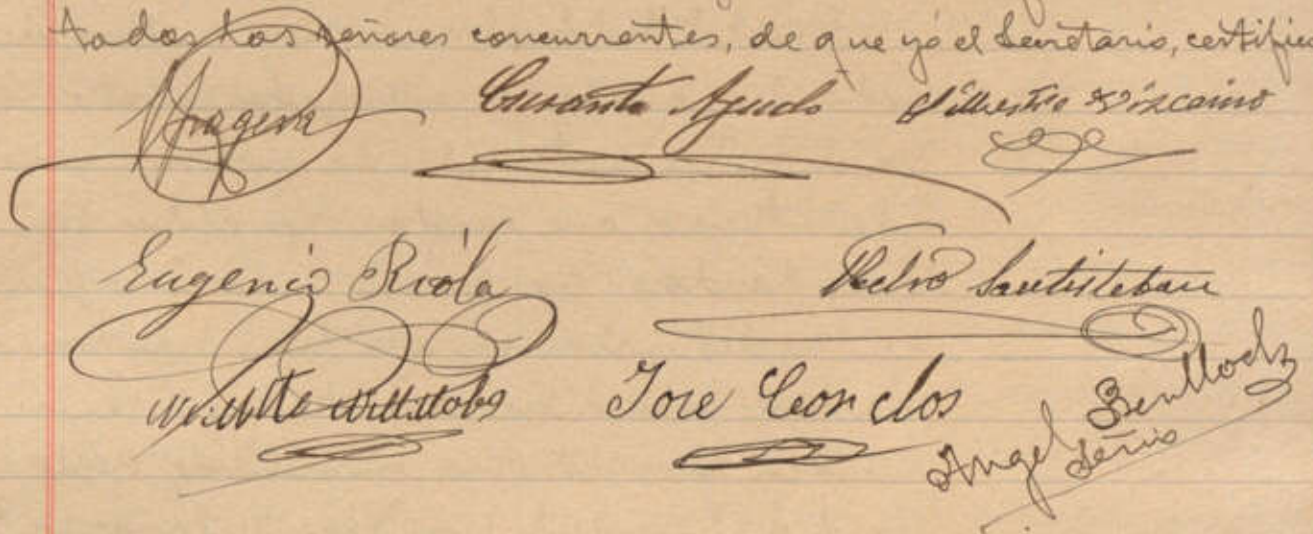 todos los señores concurrentes, de que yó el Secretario, certifico
Crisanto Agudo Silvestre Vizcaino
Eugenio Riola Pedro Santisteban
Jose Conclos Angel Benlloch